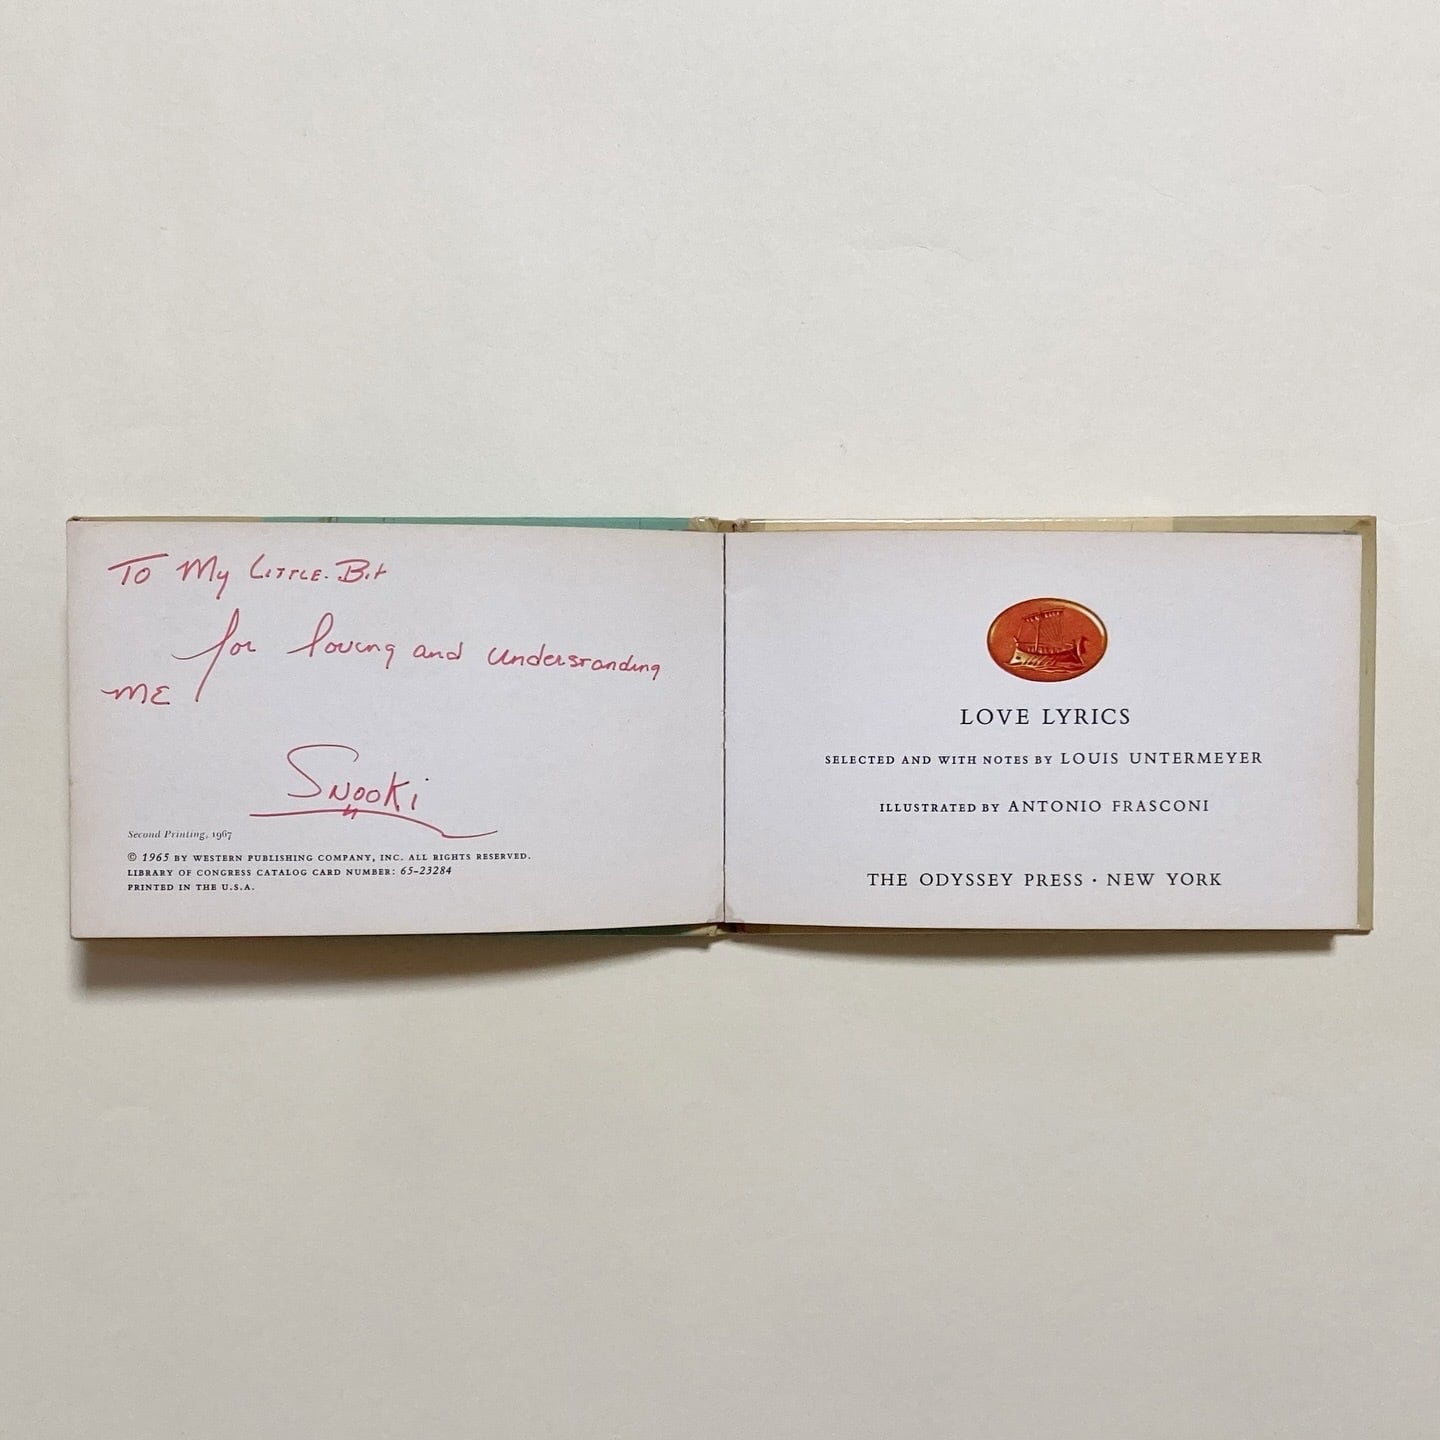 To My LITTLE-Bit
for loving and understanding
ME
SNOOKi
Second Printing, 1967
© 1965 BY WESTERN PUBLISHING COMPANY, INC. ALL RIGHTS RESERVED.
LIBRARY OF CONGRESS CATALOG CARD NUMBER: 65-23284
PRINTED IN THE U.S.A.
LOVE LYRICS
SELECTED AND WITH NOTES BY LOUIS UNTERMEYER
ILLUSTRATED BY ANTONIO FRASCONI
THE ODYSSEY PRESS · NEW YORK